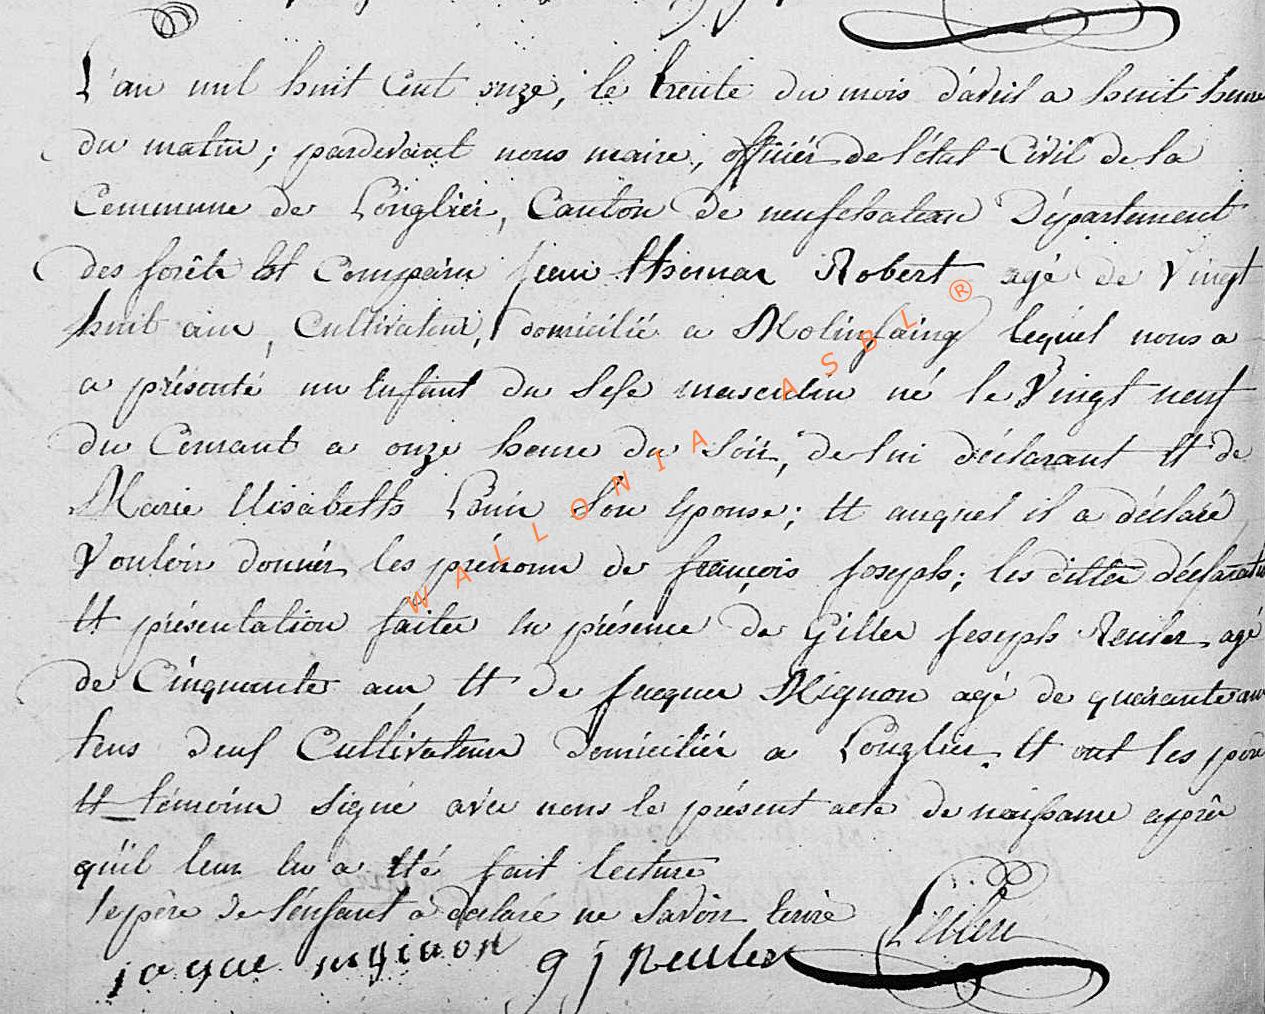 L'an mil huit cent onze, le trente du mois d'avril a huit heure
du matin; pardevant nous maire, officier de l'état Civil de la
Commune de Longlier, Canton de neufchateau Département
des forêts Est Comparu jean thomas Robert agé de Vingt
huit ans, Cultivateur, domicilié a Molinfaing lequel nous a
a présenté un Enfant du Sexe masculin né le Vingt neuf
du Courant a onze heure du Soir, de lui déclarant Et de
Marie Elisabeth Son Epouse; Et auquel il a déclaré
Vouloir donner les prénoms de françois joseph; les dittes déclaration
Et présentation faites en présence de Gilles joseph Reuler agé
de Cinquante ans Et de jacques Mignon agé de quarante ans
tous deux Cultivateurs domiciliés a Longlier. Et ont les
Et témoins signé avec nous le présent acte de naissance après
qu'il leur en a Eté fait lecture
le père de l'enfant a déclaré ne Savoir Ecrire
jaque mignon g j Reuler
WALLONIA ASBL ®